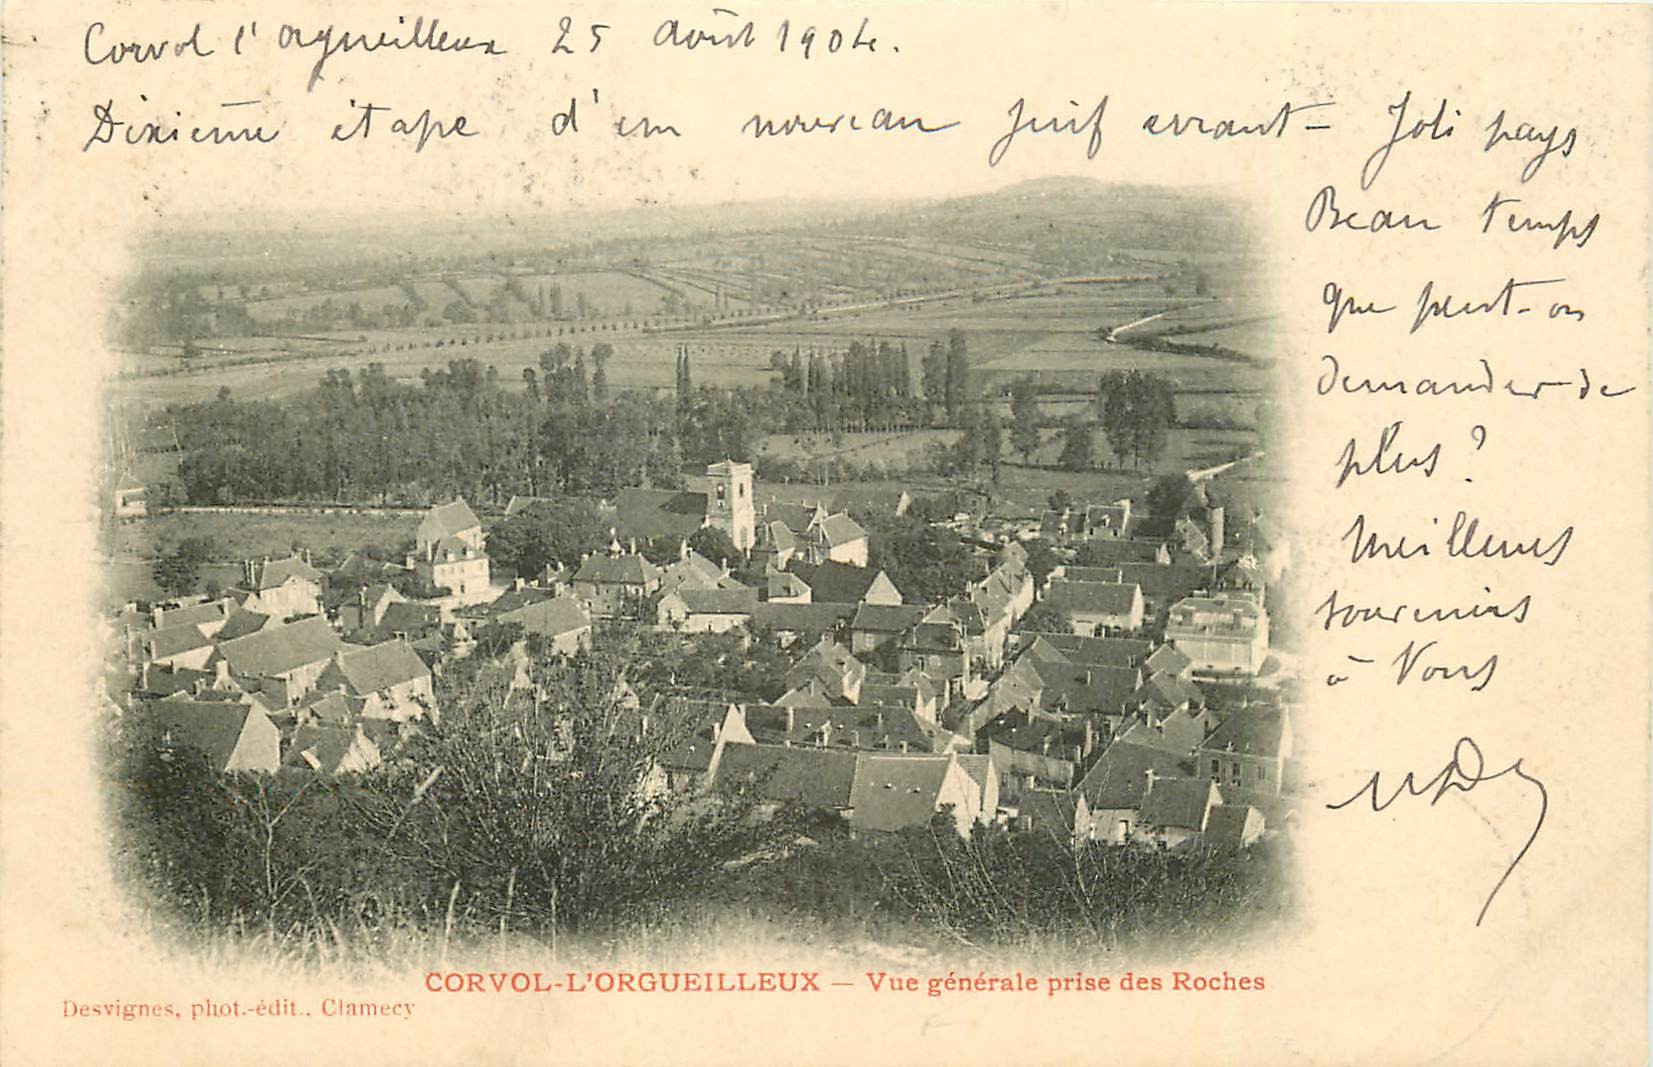 Corvol l'orgueilleux 25 août 1904.
Dixième étape d'un nouveau juif errant – Joli pays
Beau temps
que peut-on
demander de
plus ?
Meilleurs
souvenirs
à Vous
CORVOL-L'ORGUEILLEUX — Vue générale prise des Roches
Desvignes, phot.-édit., Clamecy